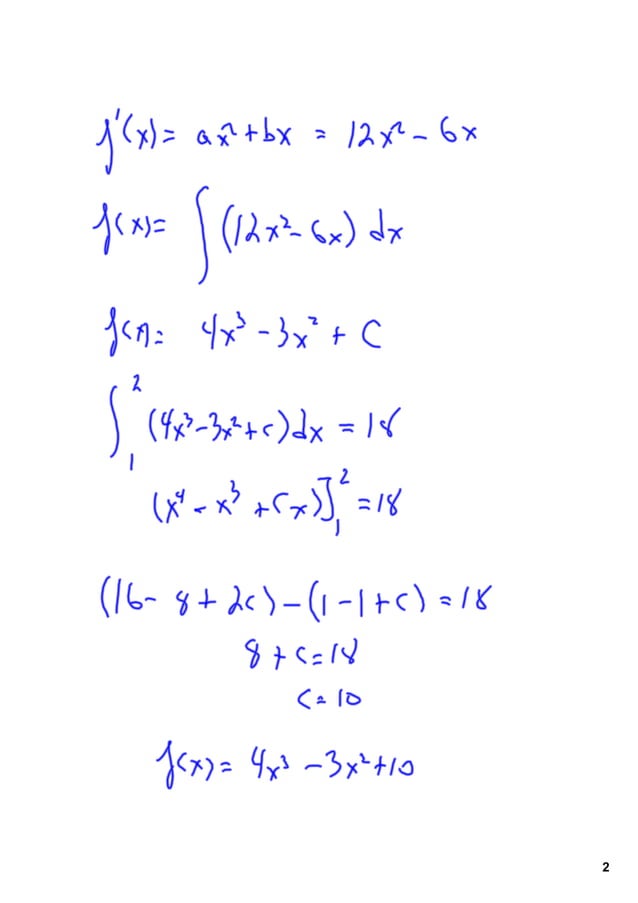 f'(x) = ax² + bx = 12x² - 6x
f(x) = ∫ (12x² - 6x) dx
f(x) = 4x³ - 3x² + C
∫₁² (4x³ - 3x² + c) dx = 18
(x⁴ - x³ + Cx)]₁² = 18
(16 - 8 + 2c) - (1 - 1 + c) = 18
8 + c = 18
c = 10
f(x) = 4x³ - 3x² + 10
2